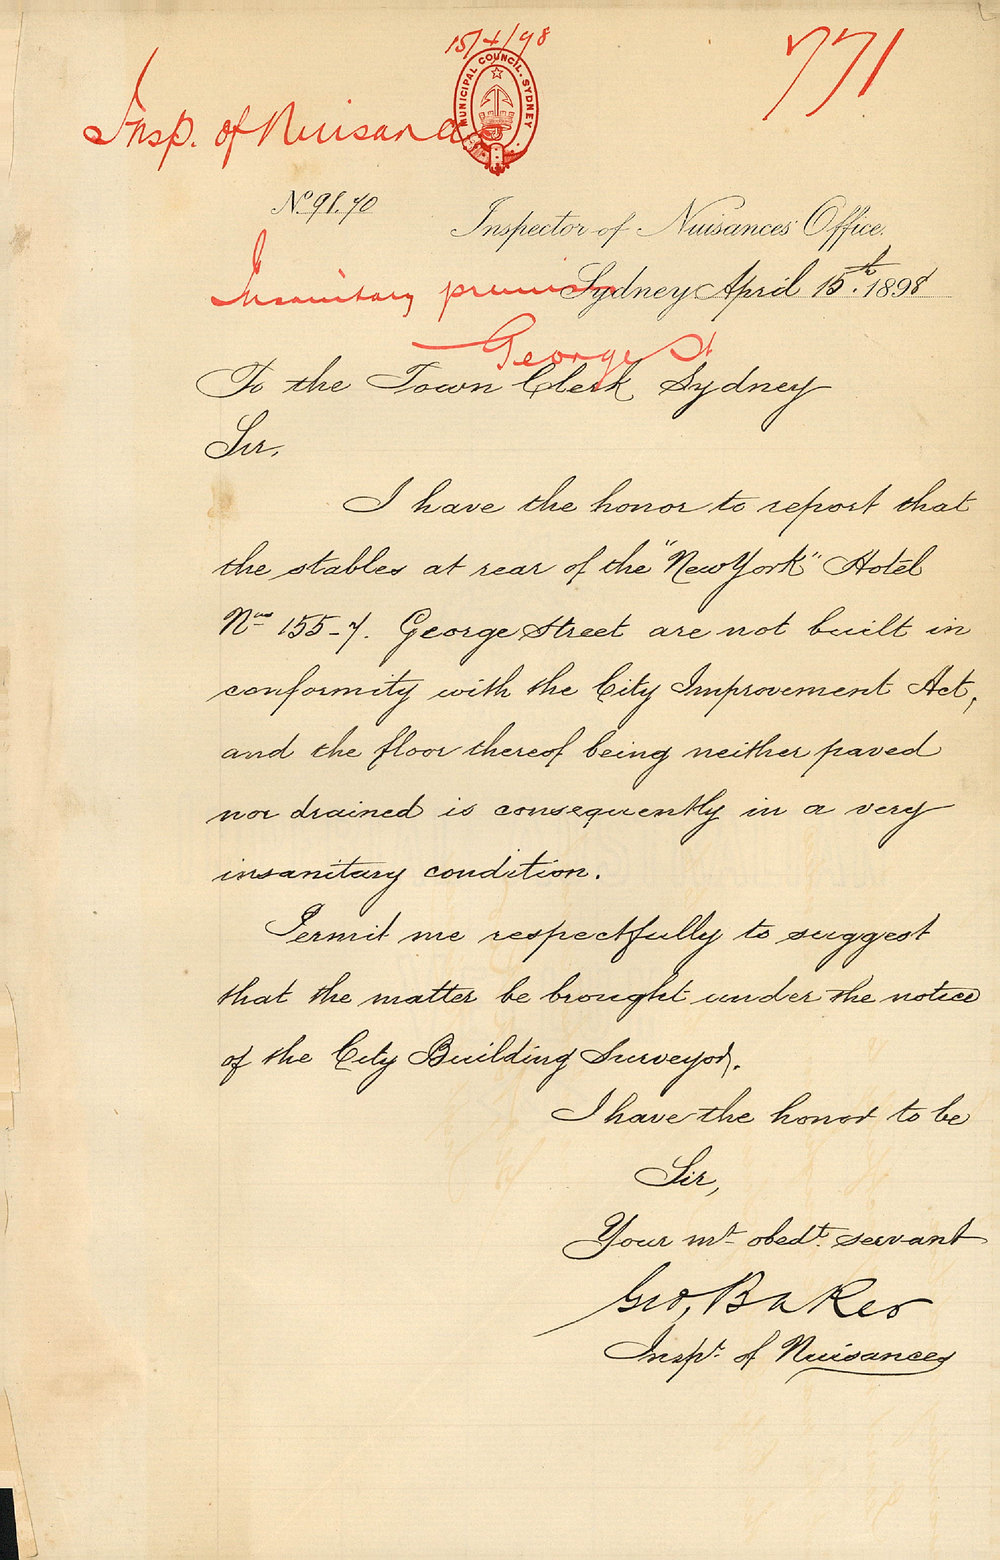 15/4/98
771
MUNICIPAL COUNCIL. SYDNEY
Insp. of Nuisances
No 91.70
Inspector of Nuisances' Office.
Insanitary premises
Sydney April 15th. 1898
George St
To the Town Clerk Sydney
Sir,
I have the honor to report that
the stables at rear of the "New York" Hotel
Nos 155-7. George Street are not built in
conformity with the City Improvement Act,
and the floor thereof being neither paved
nor drained is consequently in a very
insanitary condition.
Permit me respectfully to suggest
that the matter be brought under the notice
of the City Building Surveyor.
I have the honor to be
Sir,
Your mt obedt. servant
Geo, Baker
Inspt. of Nuisances